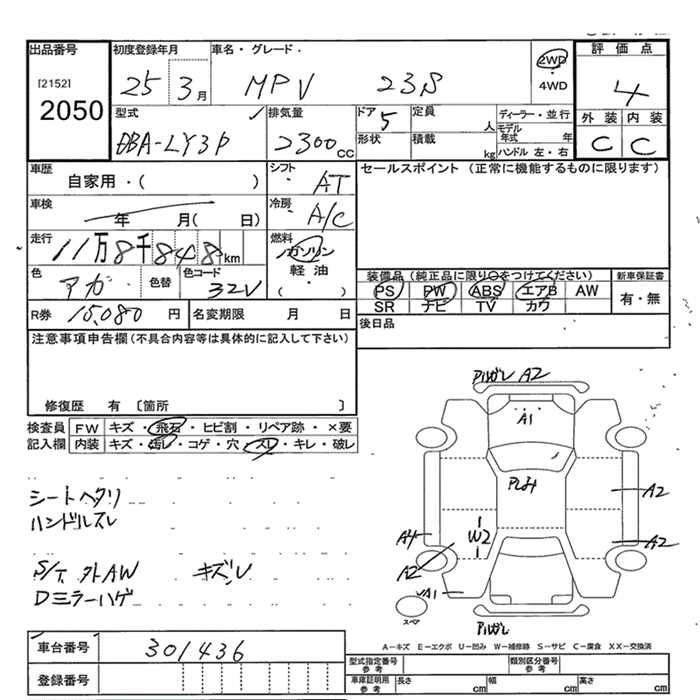 出品番号
[2152]
2050
初度登録年月
25 3月
車名・グレード.
MPV 23S
2WD
・
4WD
評価点
4
外装 内装
C C
型式
DBA-LY3P
排気量
2300cc
ドア 5
定員 人
形状
積載 kg
ディーラー・並行
モデル年式 年
ハンドル 左・右
車歴
自家用・( )
シフト
AT
セールスポイント (正常に機能するものに限ります)
車検
年 月( 日)
冷房
A/C
走行
11万8千848km
燃料
ガソリン
軽油
・
( )
色
アカ"
色替
色コード
32V
装備品(純正品に限り○をつけてください)
PS PW ABS エアB AW
SR ナビ TV カワ
新車保証書
有・無
R券 15,080円
名変期限 月 日
後日品
注意事項申告欄(不具合内容等は具体的に記入して下さい)
修復歴 有 〔箇所 〕
検査員 FW キズ・飛石・ヒビ割・リペア跡・×要
記入欄 内装 キズ・汚レ・コゲ・穴・スレ・キレ・破レ
シートヘタリ
ハンドルスレ
S/T 外AW キズレ
Dミラーハゲ
A2
A1
A2
A4
W2
A2
A2
A1
スペア
A-キズ E-エクボ U-凹み W-補修跡 S-サビ C-腐食 XX-交換済
車台番号 301436
登録番号
型式指定番号
参考
類別区分番号
参考
車庫証明用
参考
長さ cm
幅 cm
高さ cm